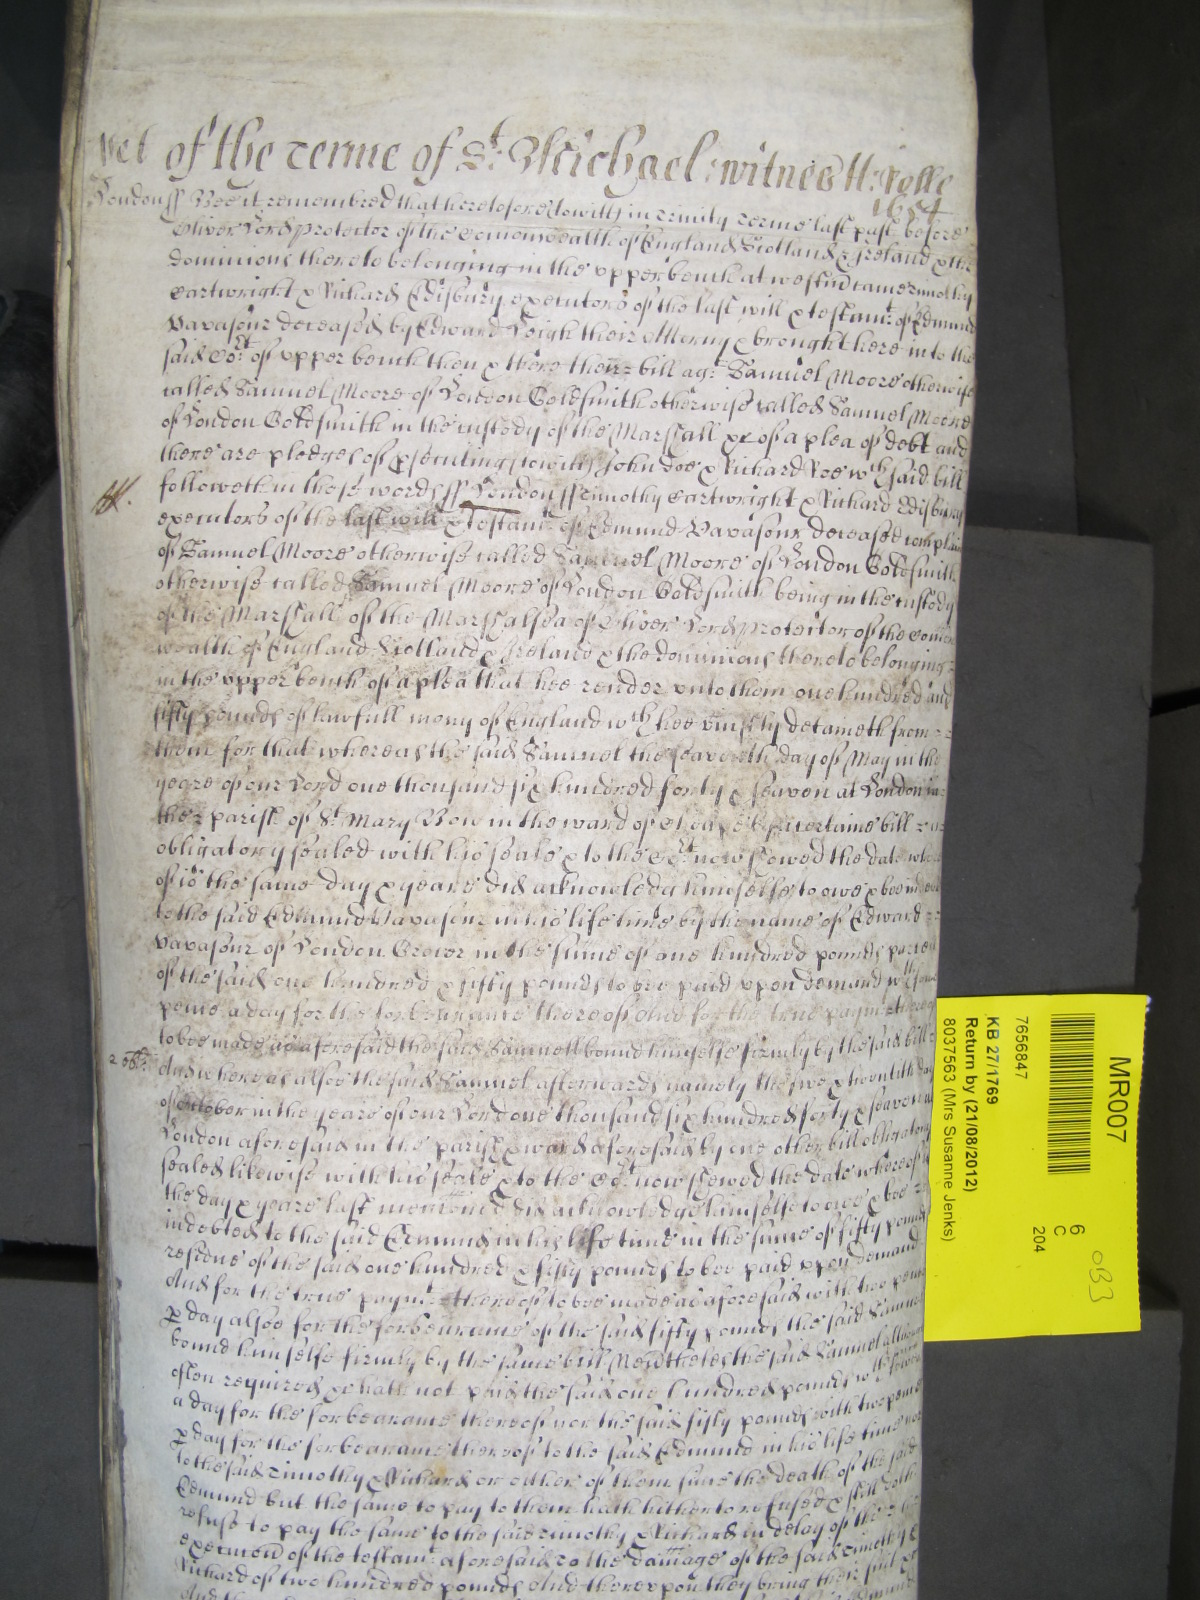 yet of the terme of St: Michael: witnes H: Rolle
1654
London ss Bee it remembred that heretofore (towitt) in Trinity terme last past before
Oliver Lord Protector of the Comonwealth of England Scotland & Ireland & the
dominions thereto belonging in the upper bench at westm came Timothy
Cartwright & Richard Edisbury executors of the last will & testamt of Edmund
Vavasour deceased by Edward Leigh their Atterny & brought here into the
said Cort of upper bench then & there their bill agt Samuel Moore otherwise
called Samuel Moore of London Goldsmith otherwise called Samuel Moore
of London Goldsmith in the custody of the Marshall &c of a plea of debt and
there are pledges of psecuting (towitt) John Doe & Richard Roe wch said bill
followeth in these words ss London ss Timothy Cartwright & Richard Edisbury
executors of the last will & testamt of Edmund Vavasour deceased complaine
of Samuel Moore otherwise called Samuel Moore of London Goldsmith
otherwise called Samuel Moore of London Goldsmith being in the custody
of the Marshall of the Marshalsea of Oliver Lord Protector of the Comon
wealth of England Scotland & Ireland & the dominions thereto belonging
in the upper bench of a plea that hee render unto them one hundred and
fifty pounds of lawfull mony of England wch hee uniustly detaineth from
them for that whereas the said Samuel the seaventh day of May in the
yeare of our Lord one thousand six hundred forty & seaven at London in
the parish of St Mary Bow in the ward of Cheape by a certaine bill
obligatory sealed with his seale & to the Cort now shewed the date wher
of is the same day & yeare did acknowledg himselfe to owe & bee indebted
to the said Edmund Vavasour in his life time by the name of Edward
Vavasour of London Grocer in the sume of one hundred pounds parcel
of the said one hundred & fifty pounds to bee paid upon demand wth
pence a day for the forbearance thereof And for the true paymt thereof
to bee made as aforesaid the said Samuell bound himselfe firmly by the said bill
2 obl:
And whereas alsoe the said Samuel afterwards namely the two & twentith day
of October in the yeare of our Lord one thousand six hundred forty & seaven at
London aforesaid in the parish & ward aforesaid by one other bill obligatory
sealed likewise with his seale & to the Cort now shewed the date whereof is
the day & yeare last mentioned did acknowledge himselfe to owe & bee
indebted to the said Edmund in his life time in the sume of fifty pounds
residue of the said one hundred & fifty pounds to bee paid upon demand
And for the true paymt thereof to bee made as aforesaid with two pence
p day alsoe for the forbearance of the said fifty pounds the said Samuel
bound himselfe firmly by the same bill Neverthelesse the said Samuel although
often required &c hath not paid the said one hundred pounds wth
a day for the forbearance thereof nor the said fifty pounds with two pence
p day for the forbearance thereof to the said Edmund in his life time nor
to the said Timothy & Richard or either of them since the death of the said
Edmund but the same to pay to them hath hitherto refused & still doth
refuse to pay the same to the said Timothy & Richard in delay of the
execucon of the testamt aforesaid to the damage of the said Timothy &
Richard of two hundred pounds And thereupon they bring their suit &c
MR007
6
C
204
033
7656847
KB 27/1769
Return by (21/08/2012)
8037563 (Mrs Susanne Jenks)